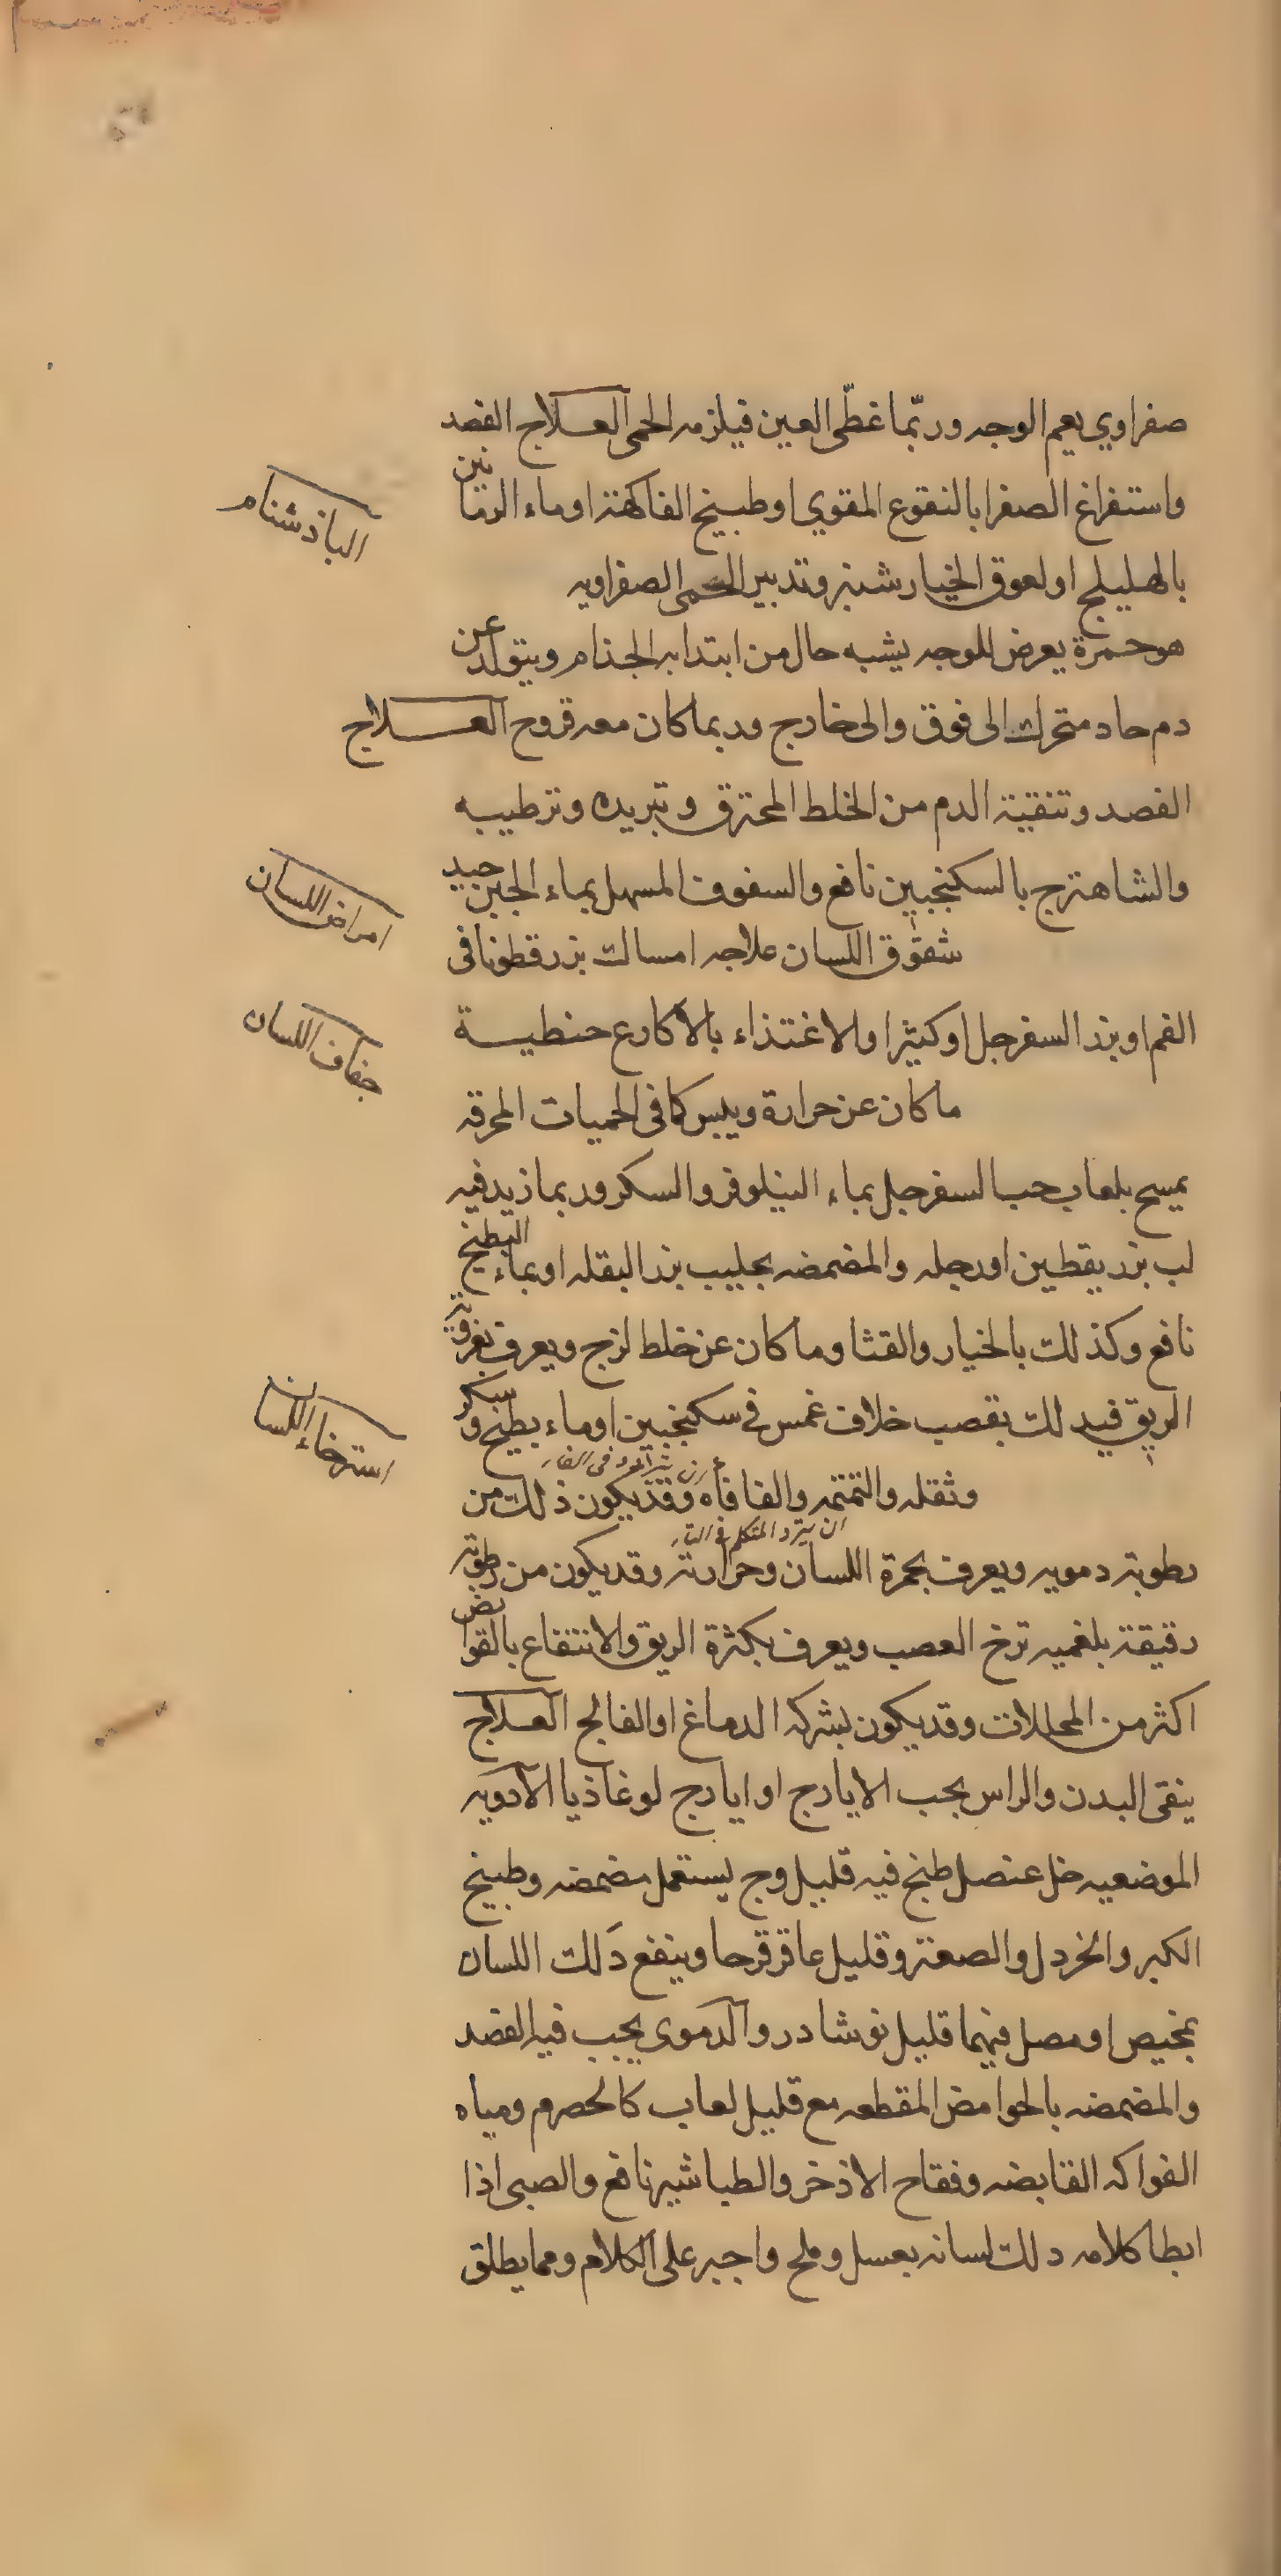 صفراوي يعم الوجه وربّما غطّى العين فيلزمه الحمى العلاج الفصد
واستفراغ الصفرا بالنقوع المقوي او طبيخ الفاكهة او ماء الرمانين
الباذشنام
بالهليلج او لعوق الخيارشنبر وتدبير الحمى الصفراويه
هو حمرة يعرض للوجه يشبه حال من ابتدا به الجذام ويتولد عن
دم حاد متحرك الى فوق والى خارج وربما كان معه قروح العلاج
الفصد وتنقية الدم من الخلط المحترق وتبريده وترطيبه
والشاهترج بالسكنجبين نافع والسفوف المسهل بماء الجبن جيد
امراض اللسان
شقوق اللسان علاجه امساك بزرقطونا فى
الفم او بزر السفرجل او كثيرا والاغتذاء بالاكارع حنطية
جفاف اللسان
ما كان عن حرارة ويبس كما فى الحميات المحرقه
يمسح بلعاب حب السفرجل بماء النيلوفر والسكر وربما زيد فيه
لب بزر يقطين او رجله والمضمضه بحليب بزر البقله او بماء البطيخ
نافع وكذلك بالخيار والقثا وما كان عن خلط لزج ويعرف بغروية
الريق فيدلك بقصب خلاف غمس في سكنجبين او ماء بطيخ وسكر
استرخاء اللسان
وثقله والتمتمه والفافأه وقد يكون ذلك من
ان يتردد المتكلم في التاء
رطوبة دمويه ويعرف بحمرة اللسان وحرارته وقد يكون من رطوبة
رقيقة بلغميه ترخ العصب ويعرف بكثرة الريق والانتفاع بالقوابض
اكثر من المحللات وقد يكون بشركه الدماغ او الفالج العلاج
ينقى البدن والراس بحب الايارج او ايارج لوغاذيا الادويه
الموضعيه خل عنصل طبخ فيه قليل وج يستعمل مضمضه وطبيخ
الكبر والخردل والصعتر وقليل عاقرقرحا وينفع دَلك اللسان
بمخيض او مصل فيهما قليل نوشادر والدموى يجب فيه الفصد
والمضمضه بالحوامض المقطعه مع قليل لعاب كالحصرم ومياه
الفواكه القابضه وفقاح الاذخر والطباشير نافع والصبى اذا
ابطا كلامه دلك لسانه بعسل وملح واجبر على الكلام ومما يطلق